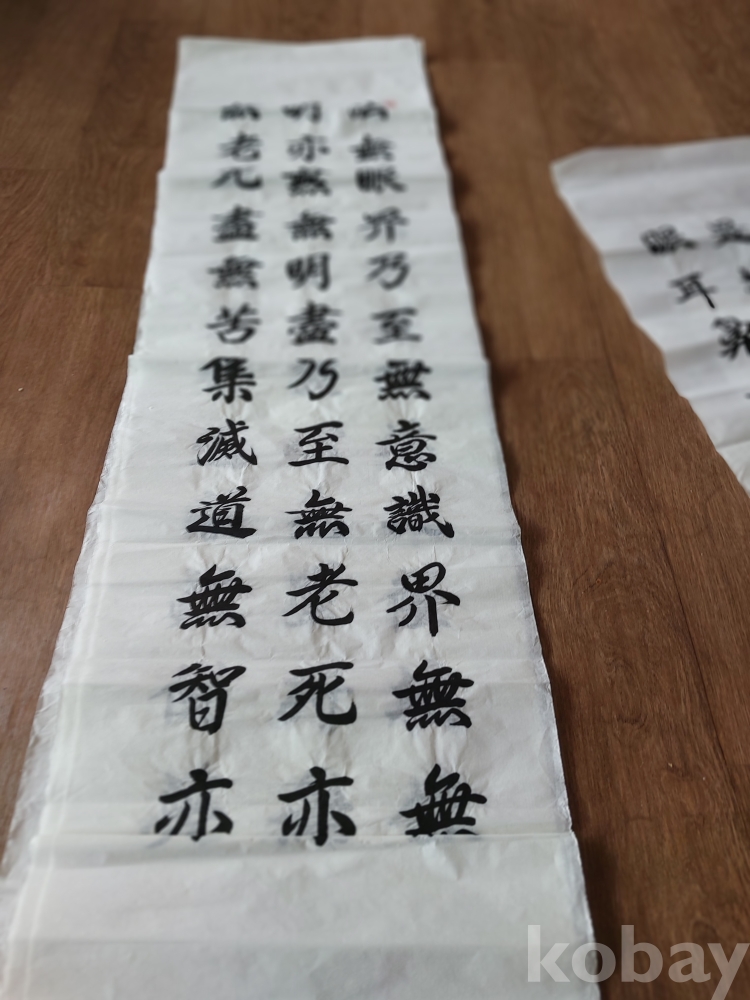 無眼界乃至無意識界無無
明亦無無明盡乃至無老死亦
無老死盡無苦集滅道無智亦
眼耳
kobay